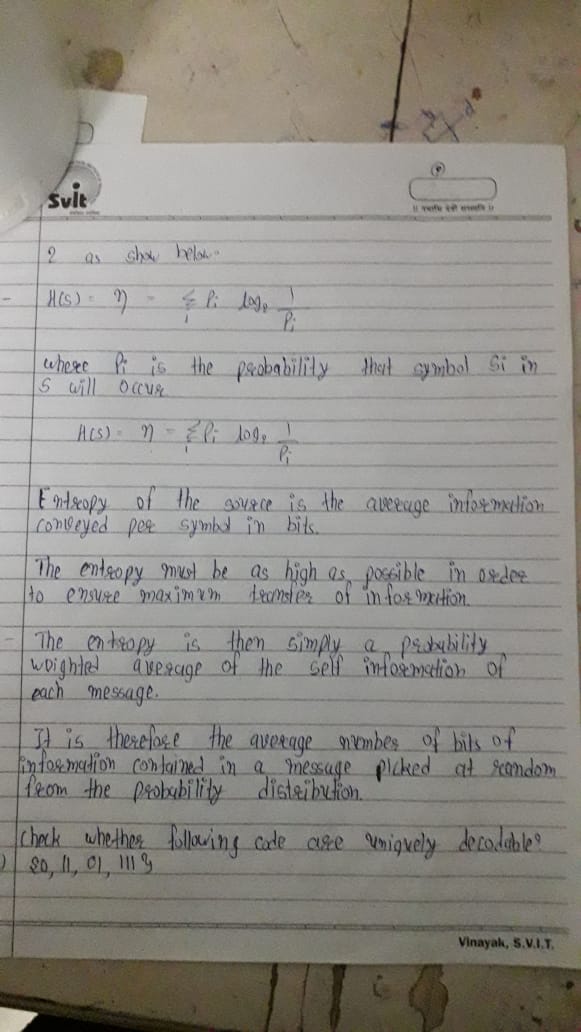 Svit
2 as show below.
H(S) = η = Σ Pi log2 1/Pi
i
where Pi is the probability that symbol Si in
S will occur
H(S) = η = Σ Pi log2 1/Pi
i
Entropy of the source is the average information
conveyed per symbol in bits.
The entropy must be as high as possible in order
to ensure maximum transfer of information.
- The entropy is then simply a probability
weighted average of the self information of
each message.
It is therefore the average number of bits of
information contained in a message picked at random
from the probability distribution.
Check whether following code are uniquely decodable?
) {0, 11, 01, 111}
Vinayak, S.V.I.T.